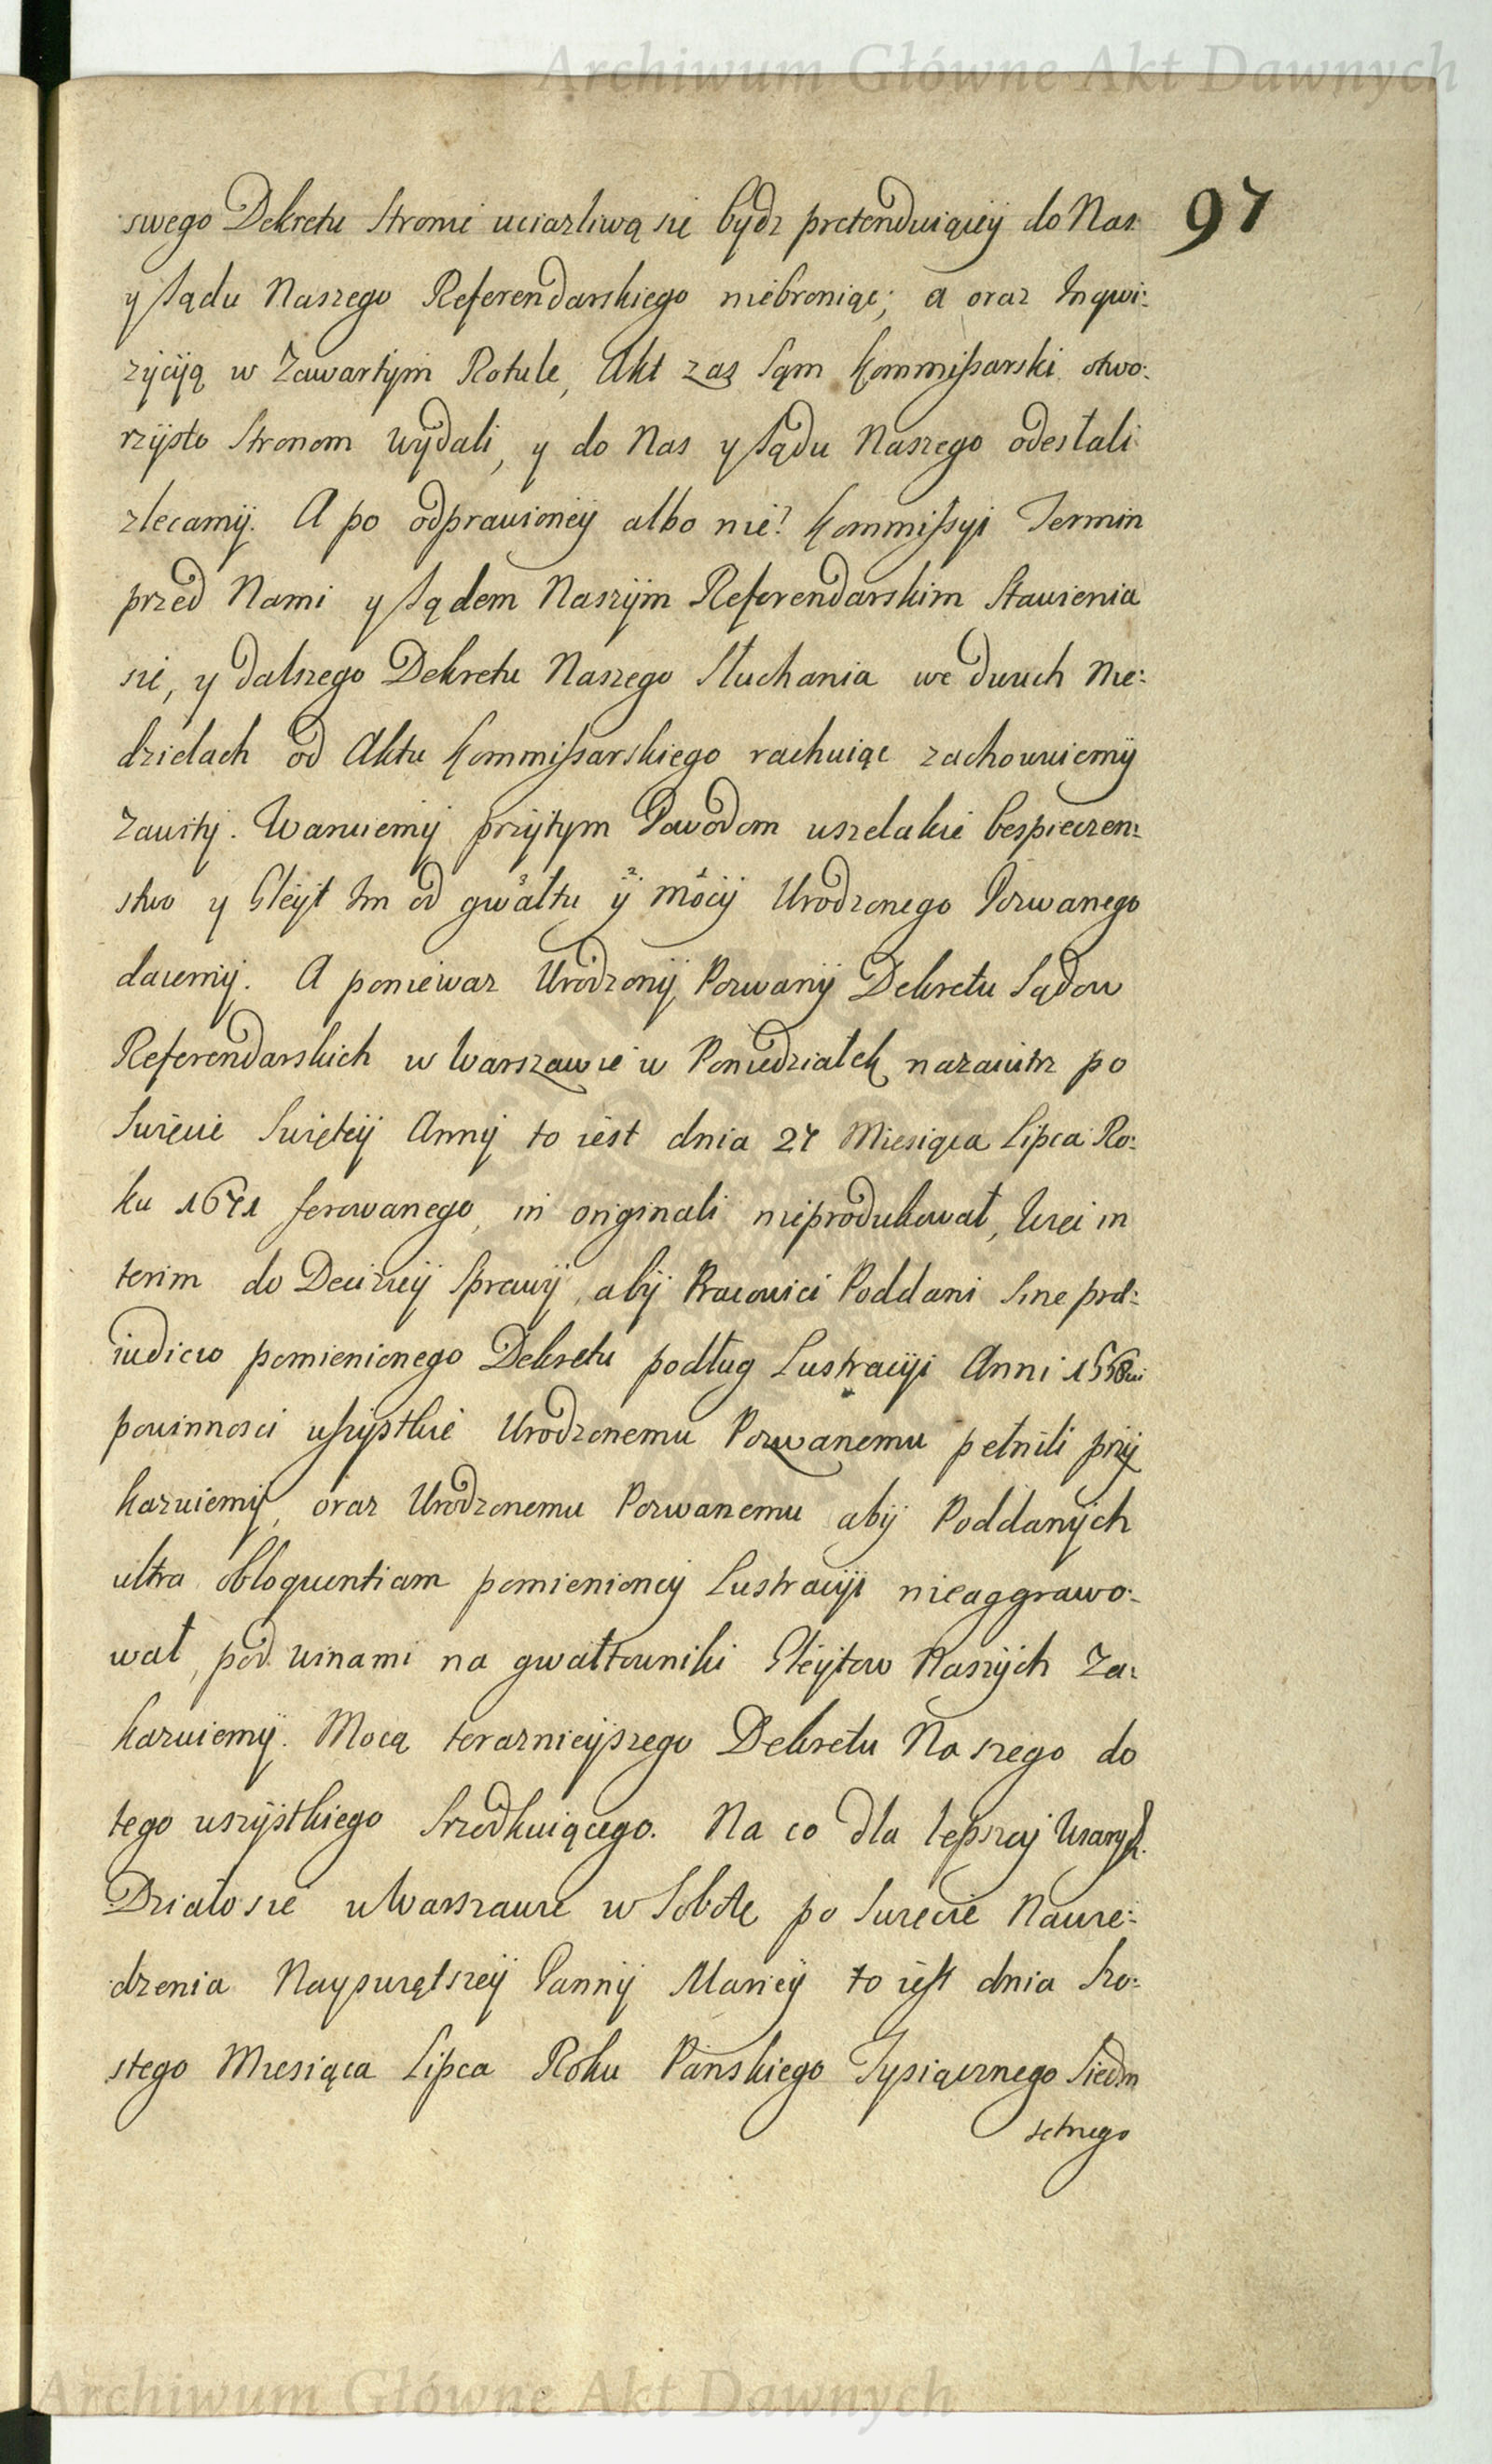 Archiwum Główne Akt Dawnych
97
swego Dekretu Stronie uciazliwą się bydz pretenduiąiey do Nas
y Sądu Naszego Referendarskiego niebroniąc; a oraz Inqwi:
zycÿą w Zawartym Rotule, Akt zas Sąm Kommissarski otwo:
rzÿsto Stronom wydali, y do Nas y Sądu Naszego odesłali
zlecamÿ. A po odprawioneÿ albo nie? Kommissyi Termin
przed Nami y Sądem Naszÿm Referendarskim Stawienia
się, y dalszego Dekretu Naszego Słuchania we dwuch Nie:
dzielach od Aktu Kommissarskiego rachuiąc zachowuiemÿ
Zawitÿ. Waruiemÿ przÿtym Powodom wszelakie bespieczen:
stwo y Gleÿt Im od gwałtu ÿ mocÿ Urodzonego Pozwanego
daiemÿ. A poniewaz Urodzonÿ Pozwanÿ Dekretu Sądow
Referendarskich w Warszawie w Poniedziałek nazaiutrz po
Swięcie Swiętey Annÿ to iest dnia 27 Miesiąca Lipca Ro:
ku 1671 ferowanego, in originali nieprodukował, Więc in
terim do Decizÿi Sprawÿ, abÿ Pracowici Poddani Sine præ:
iudicio pomienionego Dekretu podług Lustracÿi Anni
powinnosci wszystkie Urodzonemu Pozwanemu pełnili przÿ
kazuiemÿ, oraz Urodzonemu Pozwanemu abÿ Poddanÿch
ultra obloquentiam pomienioneÿ Lustracÿi nieaggrawo:
wał, pod winami na gwałtowniki Gleÿtow Naszÿch Za:
kazuiemÿ. Mocą teraznieÿszego Dekretu Naszego do
tego wszÿstkiego Srzodkuiącego. Na co dla lepszey
Działo się w Warszawie w Sobotę po Swięcie Nawie:
dzenia Nayswiętszeÿ Pannÿ Marieÿ to iest dnia Szo:
stego Miesiąca Lipca Roku Panskiego Tysiącznego Siedm
setnego
Archiwum Główne Akt Dawnych